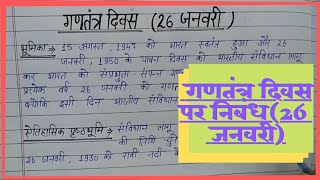 गणतंत्र दिवस (26 जनवरी)
भूमिका → 15 अगस्त, 1947 को भारत स्वतंत्र हुआ और 26
जनवरी, 1950 के पावन दिवस को भारतीय संविधान लागू
कर भारत को संप्रभुता संपन्न गण
प्रत्येक वर्ष 26 जनवरी को गणतं
क्योंकि इसी दिन भारतीय संविधान
ऐतिहासिक पृष्ठभूमि → संविधान लागू
की तिथि चु
26 जनवरी, 1930 को रावी नदी के
गणतंत्र दिवस
पर निबंध(26
जनवरी)